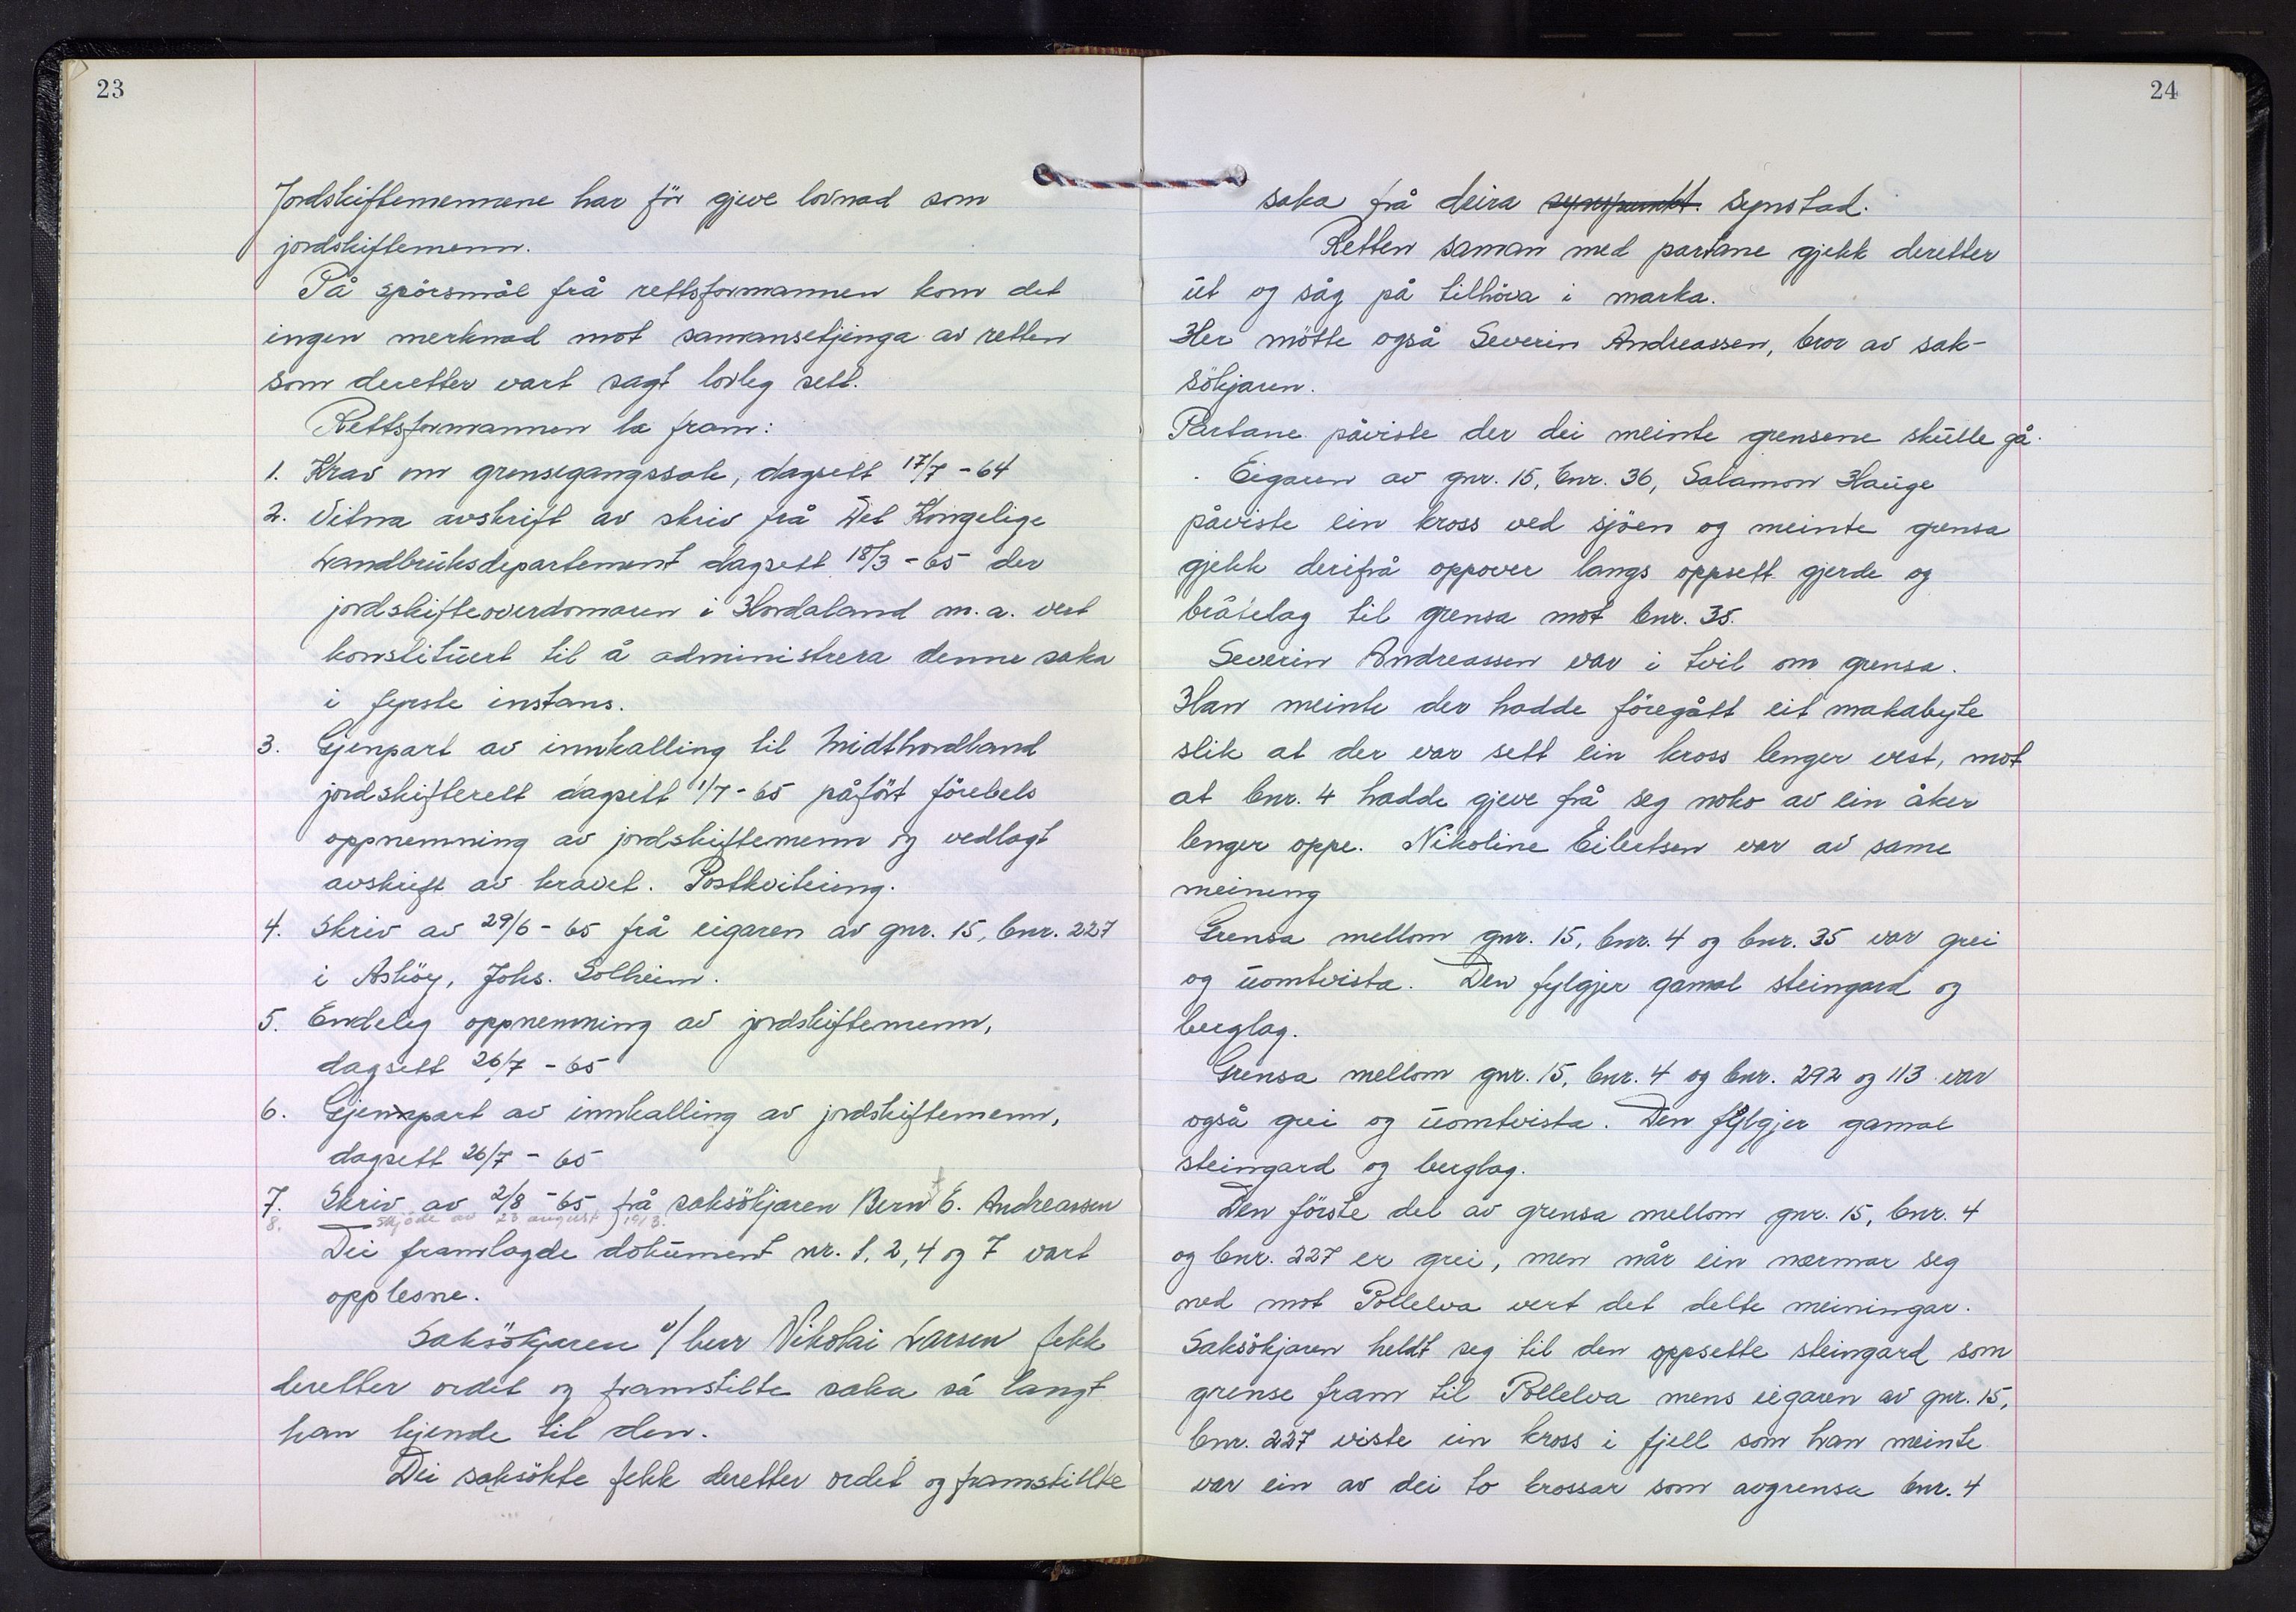 23
Jordskiftemennene har för gjeve lovnad som
jordskiftemenn.
På spörsmål frå rettsformannen kom det
ingen merknad mot samansetjinga av retten
som deretter vart sagt lovleg sett.
Rettsformannen la fram:
1. Krav om grensegangssak, dagsett 17/7 - 64
2. Vitna avskrift av skriv frå Det Kongelige
Landbruksdepartement dagsett 18/3 - 65 der
jordskifteoverdomaren i Hordaland m.a. vert
konstituert til å administrera denne saka
i fyrste instans.
3. Gjenpart av innkalling til Midthordland
jordskifterett dagsett 1/7 - 65 påfört förebels
oppnemning av jordskiftemenn og vedlagt
avskrift av kravet. Postkvitering.
4. Skriv av 29/6 - 65 frå eigaren av gnr. 15, bnr. 227
i Asköy, Johs. Solheim.
5. Endeleg oppnemning av jordskiftemenn,
dagsett 26/7 - 65
6. Gjenpart av innkalling av jordskiftemenn,
dagsett 26/7 - 65
7. Skriv av 2/8 - 65 frå saksökjaren Bern E. Andreassen
8. Skjöde av 23 august 1913.
Dei framlagde dokument nr. 1, 2, 4 og 7 vart
opplesne.
Saksökjaren v/ herr Nikolai Larsen fekk
deretter ordet og framstilte saka så langt
han kjende til den.
Dei saksökte fekk deretter ordet og framstillte
24
saka frå deira synspunkt. synstad.
Retten saman med partane gjekk deretter
ut og såg på tilhöva i marka.
Her mötte også Severin Andreassen, bror av sak-
sökjaren.
Partane påviste der dei meinte grensene skulle gå.
Eigaren av gnr. 15, bnr. 36, Salamon Hauge
påviste ein kross ved sjöen og meinte grensa
gjekk derifrå oppover langs oppsett gjerde og
bråtelag til grensa mot bnr. 35.
Severin Andreassen var i tvil om grensa.
Han meinte der hadde föregått eit makabyte
slik at der var sett ein kross lenger vest, mot
at bnr. 4 hadde gjeve frå seg noko av ein åker
lenger oppe. Nikoline Eilertsen var av same
meining
Grensa mellom gnr. 15, bnr. 4 og bnr. 35 var grei
og uomtvista. Den fylgjer gamal steingard og
berglag.
Grensa mellom gnr. 15, bnr. 4 og bnr. 292 og 113 var
også grei og uomtvista. Den fylgjer gamal
steingard og berglag.
Den förste del av grensa mellom gnr. 15, bnr. 4
og bnr. 227 er grei, men når ein nærmar seg
ned mot Pollelva vert det delte meiningar.
Saksökjaren heldt seg til den oppsette steingard som
grense fram til Pollelva mens eigaren av gnr. 15,
bnr. 227 viste ein kross i fjell som han meinte
var ein av dei to krossar som avgrensa bnr. 4